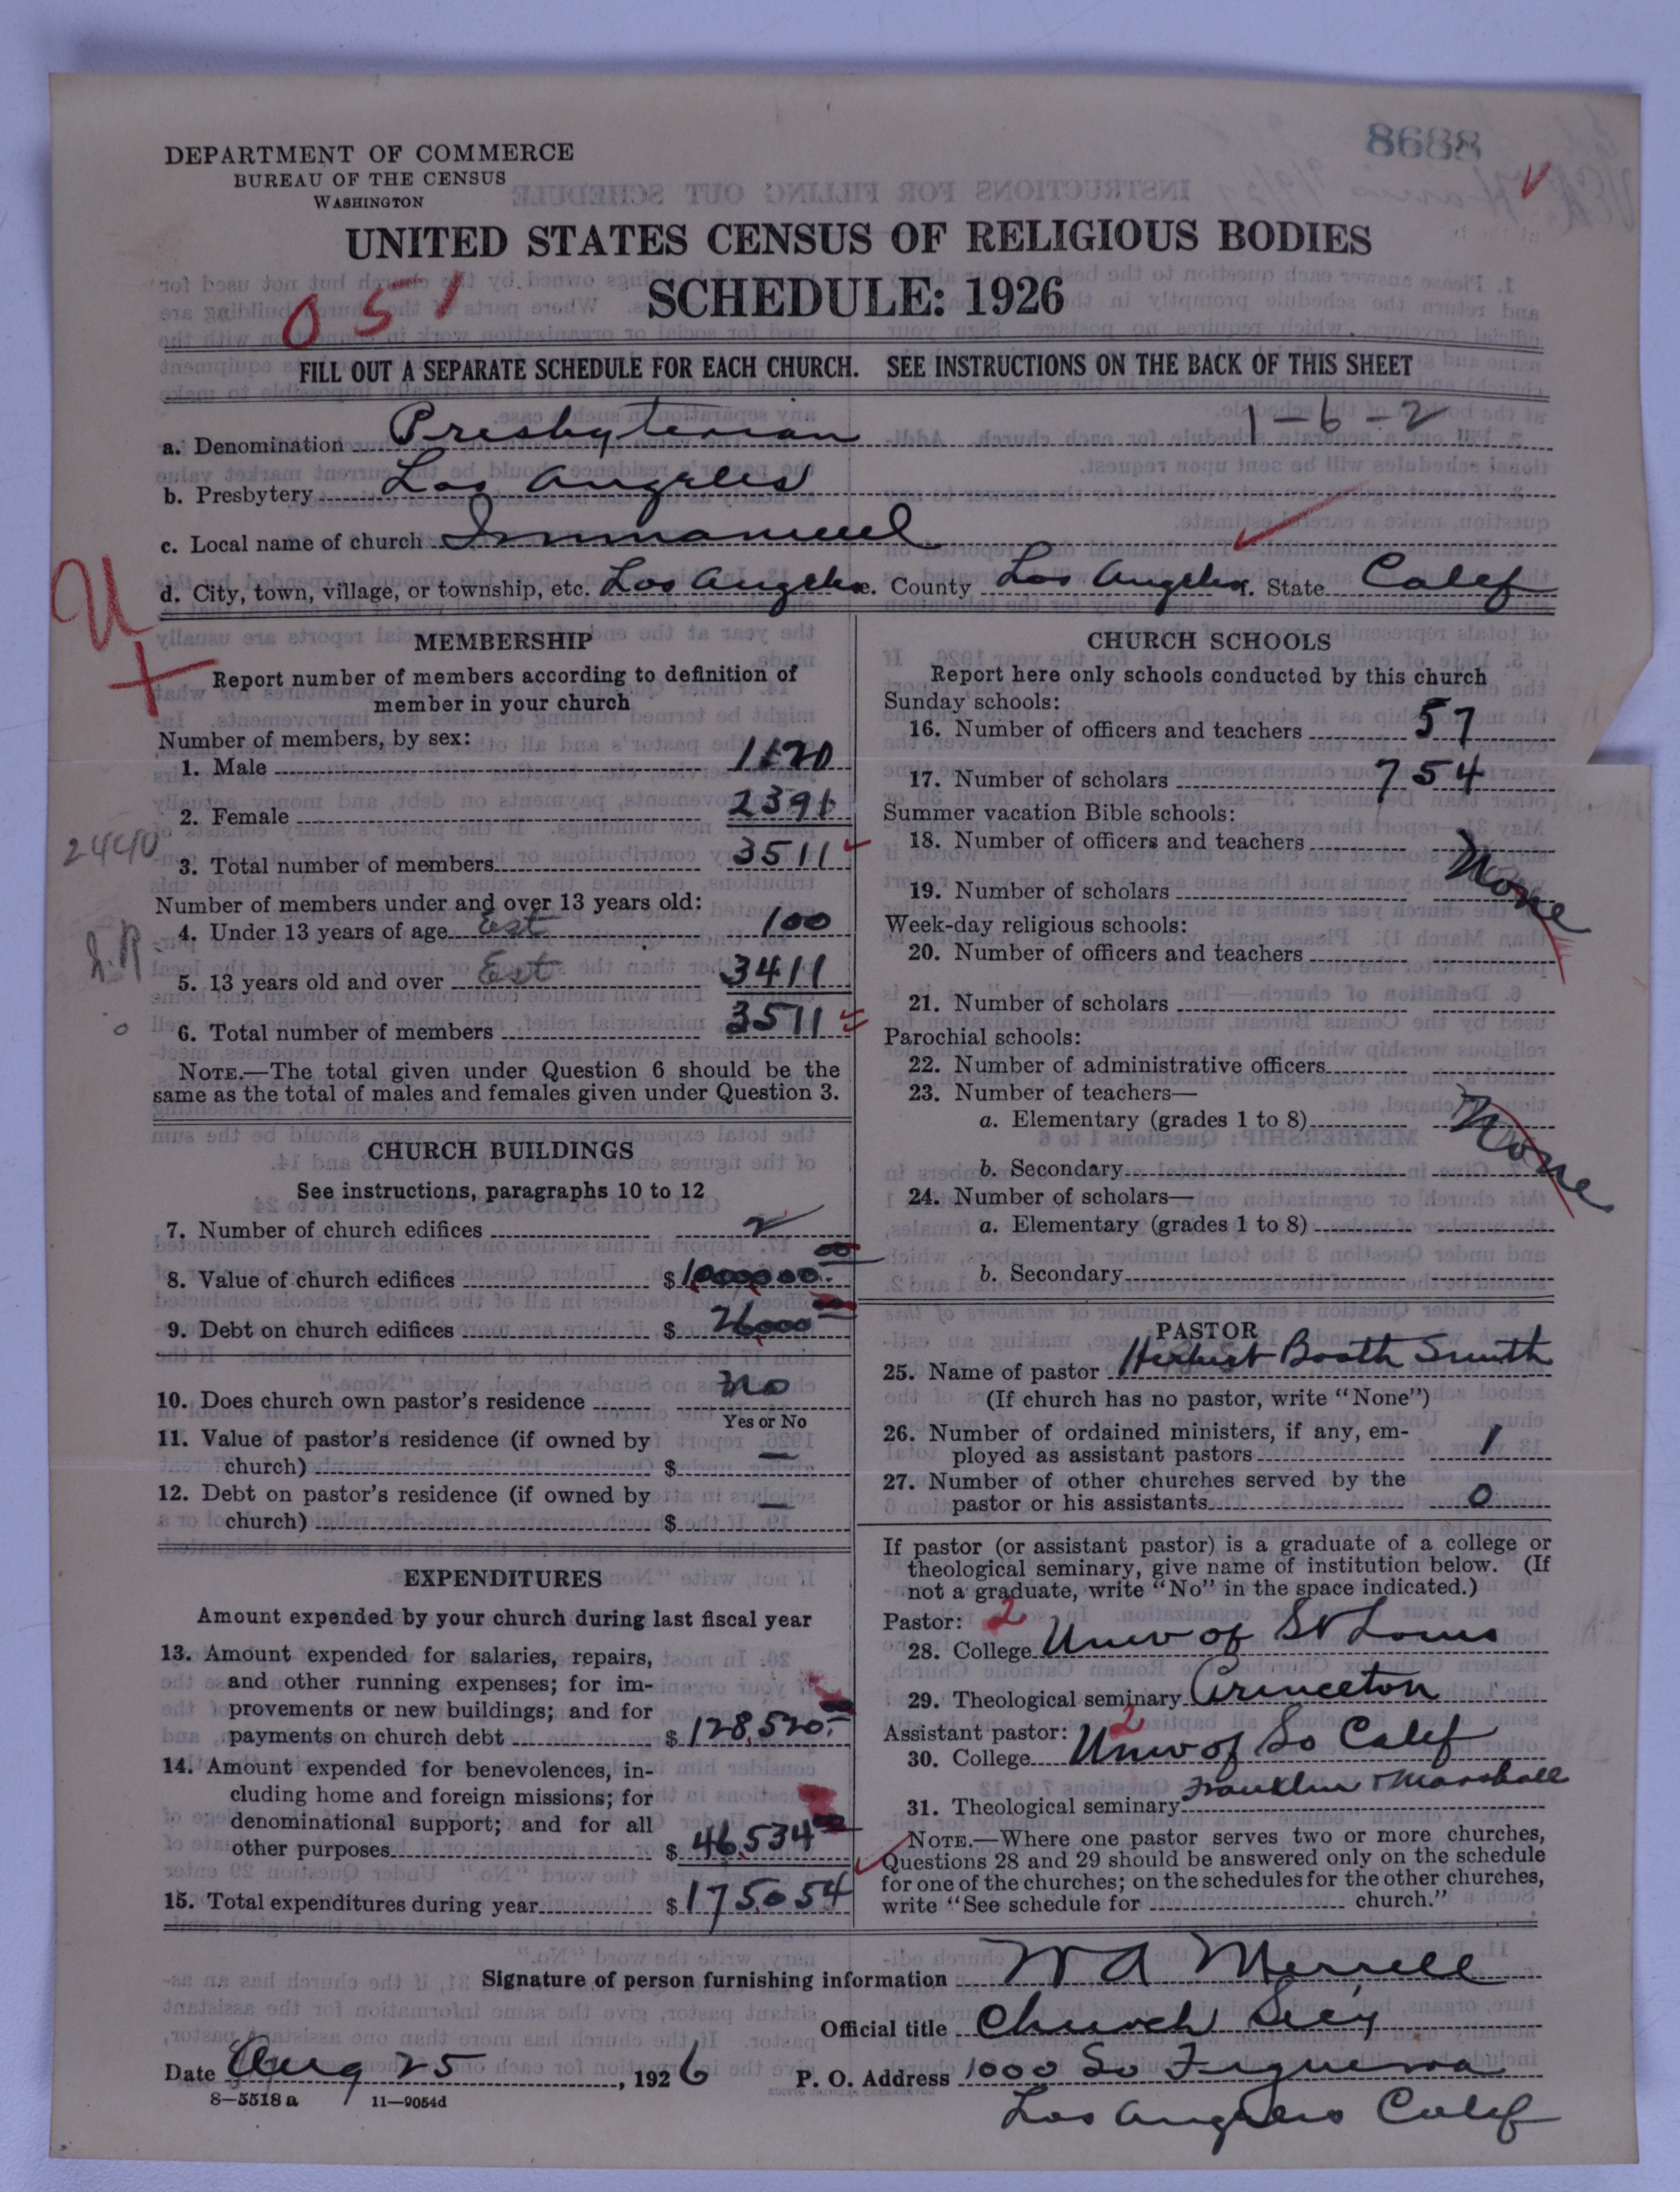 8688
DEPARTMENT OF COMMERCE
BUREAU OF THE CENSUS
WASHINGTON
UNITED STATES CENSUS OF RELIGIOUS BODIES
SCHEDULE: 1926
051
FILL OUT A SEPARATE SCHEDULE FOR EACH CHURCH. SEE INSTRUCTIONS ON THE BACK OF THIS SHEET
a. Denomination Presbyterian 1-6-2
b. Presbytery Los Angeles
c. Local name of church Immanuel
d. City, town, village, or township, etc. Los Angeles e. County Los Angeles f. State Calif
U
MEMBERSHIP
Report number of members according to definition of
member in your church
Number of members, by sex:
1. Male 1120
2. Female 2391
2440
3. Total number of members 3511
Number of members under and over 13 years old:
4. Under 13 years of age Est 100
5. 13 years old and over Est 3411
6. Total number of members 3511
NOTE.—The total given under Question 6 should be the
same as the total of males and females given under Question 3.
CHURCH BUILDINGS
See instructions, paragraphs 10 to 12
7. Number of church edifices 2
8. Value of church edifices $1,000,000.00
9. Debt on church edifices $ 26,000 00
10. Does church own pastor's residence No
Yes or No
11. Value of pastor's residence (if owned by
church) $ —
12. Debt on pastor's residence (if owned by
church) $ —
EXPENDITURES
Amount expended by your church during last fiscal year
13. Amount expended for salaries, repairs,
and other running expenses; for im-
provements or new buildings; and for
payments on church debt $ 128,520.
14. Amount expended for benevolences, in-
cluding home and foreign missions; for
denominational support; and for all
other purposes $ 46,534
15. Total expenditures during year $ 175,054
CHURCH SCHOOLS
Report here only schools conducted by this church
Sunday schools:
16. Number of officers and teachers 57
17. Number of scholars 754
Summer vacation Bible schools:
18. Number of officers and teachers None
19. Number of scholars
Week-day religious schools:
20. Number of officers and teachers
21. Number of scholars
Parochial schools:
22. Number of administrative officers
23. Number of teachers—
a. Elementary (grades 1 to 8) None
b. Secondary
24. Number of scholars—
a. Elementary (grades 1 to 8)
b. Secondary
PASTOR
25. Name of pastor Herbert Booth Smith
(If church has no pastor, write "None")
26. Number of ordained ministers, if any, em-
ployed as assistant pastors 1
27. Number of other churches served by the
pastor or his assistants 0
If pastor (or assistant pastor) is a graduate of a college or
theological seminary, give name of institution below. (If
not a graduate, write "No" in the space indicated.)
Pastor: 2
28. College Univ of St Louis
29. Theological seminary Princeton
Assistant pastor: 2
30. College Univ of So Calif
31. Theological seminary Franklin & Marshall
NOTE.—Where one pastor serves two or more churches,
Questions 28 and 29 should be answered only on the schedule
for one of the churches; on the schedules for the other churches,
write "See schedule for church."
Signature of person furnishing information W A Merrell
Official title Church Sec'y
Date Aug 25, 1926 P. O. Address 1000 So Figueroa
8—5518 a 11—9054d
Los Angeles Calif